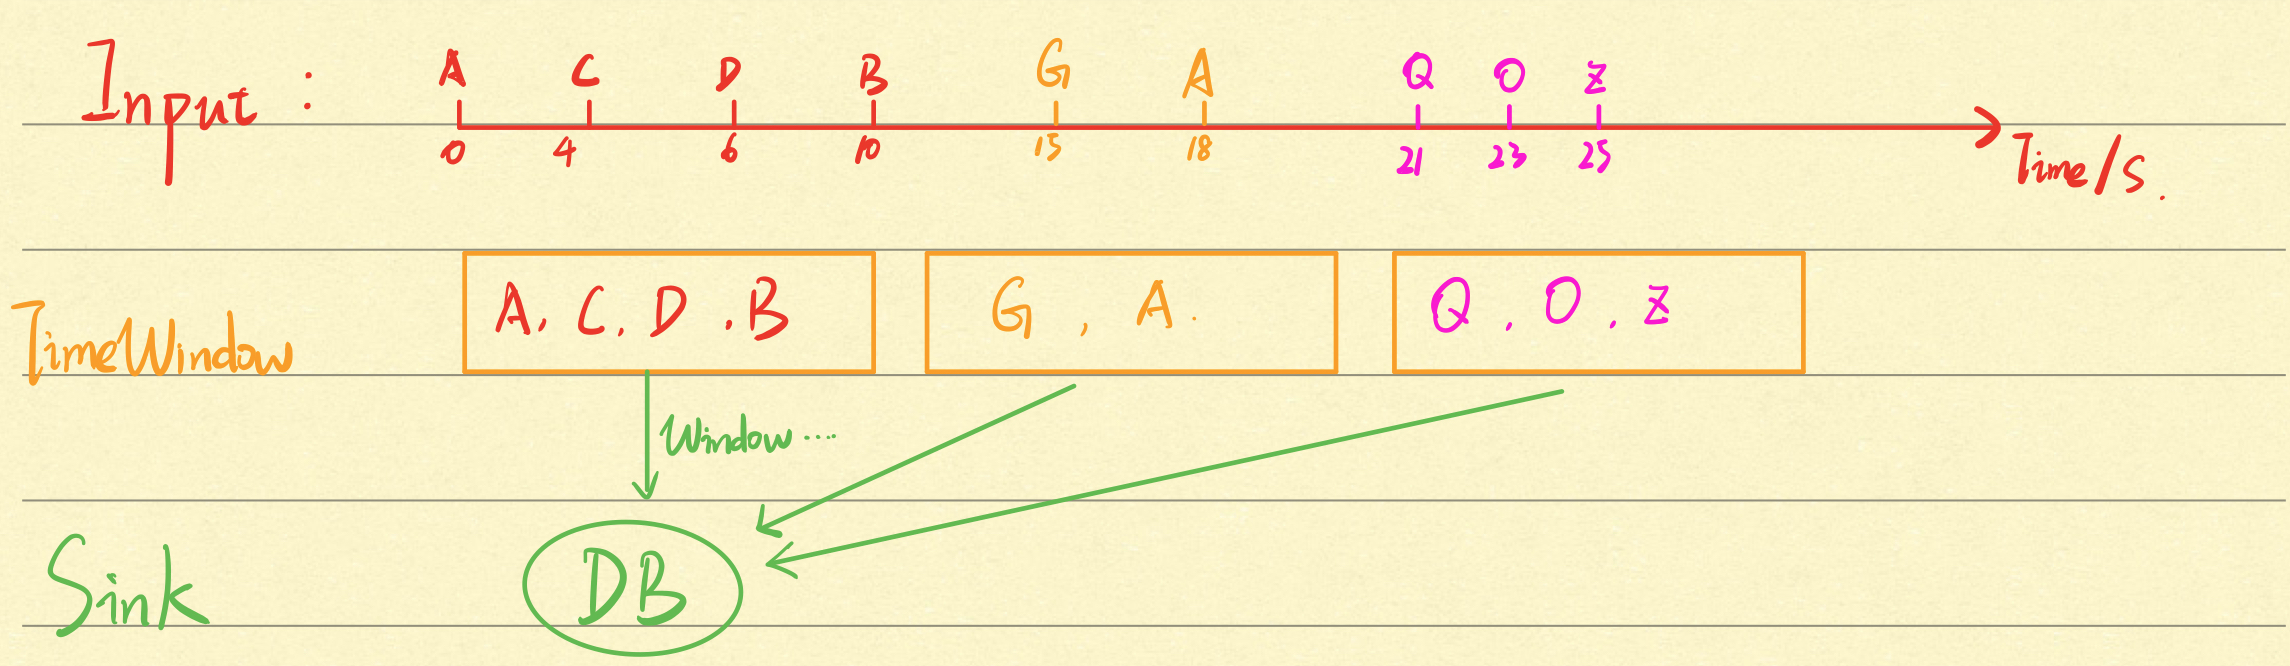 Input : A C D B G A Q O Z
0 4 6 10 15 18 21 23 25
Time/s.
TimeWindow A, C, D, B G, A. Q, O, Z
Window ....
Sink DB